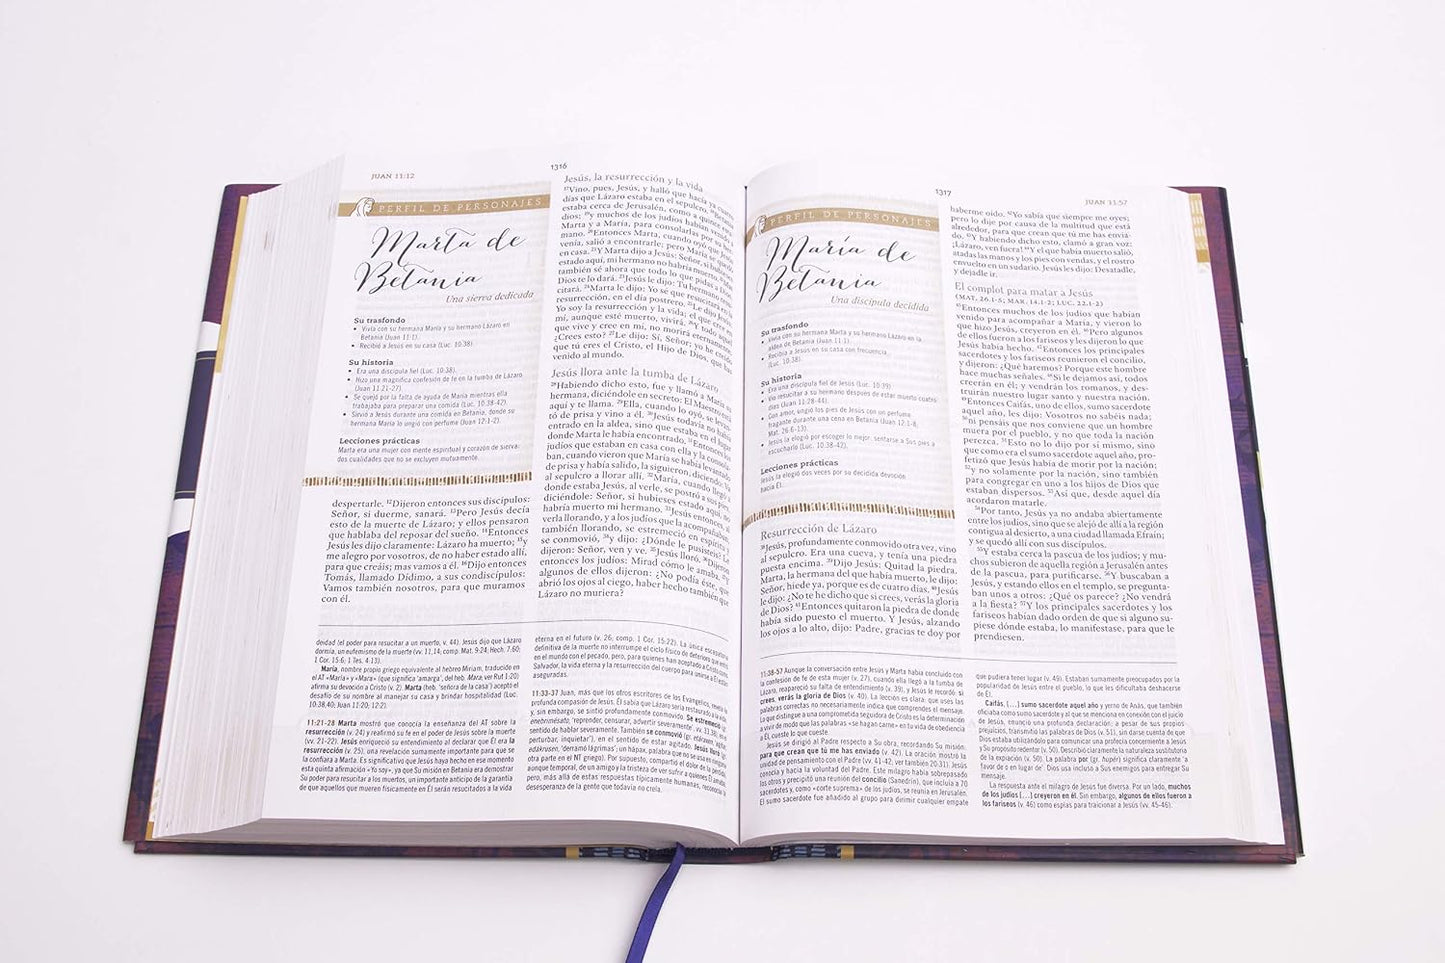 JUAN 11:12
1316
PERFIL DE PERSONAJES
Marta de
Betania
Una sierva dedicada
Su trasfondo
• Vivía con su hermana María y su hermano Lázaro en
Betania (Juan 11:1).
• Recibió a Jesús en su casa (Luc. 10:38).
Su historia
• Era una discípula fiel (Luc. 10:38).
• Hizo una magnífica confesión de fe en la tumba de Lázaro
(Juan 11:21-27).
• Se quejó por la falta de ayuda de María mientras ella
trabajaba para preparar una comida (Luc. 10:38-42).
• Sirvió a Jesús durante una comida en Betania, donde su
hermana María lo ungió con perfume (Juan 12:1-2).
Lecciones prácticas
Marta era una mujer con mente espiritual y corazón de sierva:
dos cualidades que no se excluyen mutuamente.
despertarle. 12Dijeron entonces sus discípulos:
Señor, si duerme, sanará. 13Pero Jesús decía
esto de la muerte de Lázaro; y ellos pensaron
que hablaba del reposar del sueño. 14Entonces
Jesús les dijo claramente: Lázaro ha muerto; 15y
me alegro por vosotros, de no haber estado allí,
para que creáis; mas vamos a él. 16Dijo entonces
Tomás, llamado Dídimo, a sus condiscípulos:
Vamos también nosotros, para que muramos
con él.
Jesús, la resurrección y la vida
17Vino, pues, Jesús, y halló que hacía ya cuatro
días que Lázaro estaba en el sepulcro. 18Betania
estaba cerca de Jerusalén, como a quince esta-
dios; 19y muchos de los judíos habían venido a
Marta y a María, para consolarlas por su her-
mano. 20Entonces Marta, cuando oyó que Jesús
venía, salió a encontrarle; pero María se quedó
en casa. 21Y Marta dijo a Jesús: Señor, si hubieses
estado aquí, mi hermano no habría muerto. 22Mas
también sé ahora que todo lo que pidas a Dios,
Dios te lo dará. 23Jesús le dijo: Tu hermano resu-
citará. 24Marta le dijo: Yo sé que resucitará en la
resurrección, en el día postrero. 25Le dijo Jesús:
Yo soy la resurrección y la vida; el que cree en
mí, aunque esté muerto, vivirá. 26Y todo aquel
que vive y cree en mí, no morirá eternamente.
¿Crees esto? 27Le dijo: Sí, Señor; yo he creído
que tú eres el Cristo, el Hijo de Dios, que has
venido al mundo.
Jesús llora ante la tumba de Lázaro
28Habiendo dicho esto, fue y llamó a María su
hermana, diciéndole en secreto: El Maestro está
aquí y te llama. 29Ella, cuando lo oyó, se levan-
tó de prisa y vino a él. 30Jesús todavía no había
entrado en la aldea, sino que estaba en el lugar
donde Marta le había encontrado. 31Entonces los
judíos que estaban en casa con ella y la consola-
ban, cuando vieron que María se había levantado
de prisa y había salido, la siguieron, diciendo: Va
al sepulcro a llorar allí. 32María, cuando llegó a
donde estaba Jesús, al verle, se postró a sus pies,
diciéndole: Señor, si hubieses estado aquí, no
habría muerto mi hermano. 33Jesús entonces, al
verla llorando, y a los judíos que la acompañaban,
también llorando, se estremeció en espíritu y
se conmovió, 34y dijo: ¿Dónde le pusisteis? Le
dijeron: Señor, ven y ve. 35Jesús lloró. 36Dijeron
entonces los judíos: Mirad cómo le amaba. 37Y
algunos de ellos dijeron: ¿No podía éste, que
abrió los ojos al ciego, haber hecho también que
Lázaro no muriera?
deidad (el poder para resucitar a un muerto, v. 44). Jesús dijo que Lázaro
dormía, un eufemismo de la muerte (vv. 11,14, comp. Mat. 9:24; Hech. 7:60;
1 Cor. 15:6; 1 Tes. 4:13).
María, nombre propio griego equivalente al hebreo Miriam, traducido en
el AT «María» y «Mara» (que significa 'amarga', del heb. Mara; ver Rut 1:20)
afirma su devoción a Cristo (v. 2). Marta (heb. 'señora de la casa') aceptó el
desafío de su nombre al manejar su casa y brindar hospitalidad (Luc.
10:38,40; Juan 11:20; 12:2).
11:21-28 Marta mostró que conocía la enseñanza del AT sobre la
resurrección (v. 24) y reafirmó su fe en el poder de Jesús sobre la muerte
(vv. 21-22). Jesús enriqueció su entendimiento al declarar que Él era la
resurrección (v. 25), una revelación sumamente importante para que se
la confiara a Marta. Es significativo que Jesús haya hecho en ese momento
esta quinta afirmación «Yo soy», ya que Su misión en Betania era demostrar
Su poder para resucitar a los muertos, un importante anticipo de la garantía
de que aquellos que mueren físicamente en Él serán resucitados a la vida
eterna en el futuro (v. 26; comp. 1 Cor. 15:22). La única escapatoria
definitiva de la muerte no interrumpe el ciclo físico de deterioro que entró
en el mundo con el pecado, pero, para quienes han aceptado a Cristo como
Salvador, la vida eterna y la resurrección del cuerpo para unirse a Él están
aseguradas.
11:33-37 Juan, más que los otros escritores de los Evangelios, revela la
profunda compasión de Jesús. Él sabía que Lázaro sería restaurado a la vida,
y, sin embargo, se sintió profundamente conmovido. Se estremeció (gr.
enebrimēsato, 'reprender, censurar, advertir severamente', vv. 33,38), en el
sentido de hablar severamente. También se conmovió (gr. etáraxen, 'agitar,
perturbar, inquietar'), en el sentido de estar agitado. Jesús lloró (gr.
edákrusen, 'derramó lágrimas'; un hápax, palabra que no se usa en ninguna
otra parte en el NT griego). Por supuesto, compartió el dolor de la pérdida,
aunque temporal, de un amigo y la tristeza de ver sufrir a quienes Él amaba,
pero, más allá de estas respuestas típicamente humanas, reconoció la
desesperanza de la gente que todavía no creía.
1317
JUAN 11:57
PERFIL DE PERSONAJES
María de
Betania
Una discípula decidida
Su trasfondo
• Vivía con su hermana Marta y su hermano Lázaro en la
aldea de Betania (Juan 11:1).
• Recibía a Jesús en su casa con frecuencia
(Luc. 10:38).
Su historia
• Era una discípula fiel de Jesús (Luc. 10:39).
• Vio resucitar a su hermano después de estar muerto cuatro
días (Juan 11:28-44).
• Con amor, ungió los pies de Jesús con un perfume
fragante durante una cena en Betania (Juan 12:1-8;
Mat. 26:6-13).
• Jesús la elogió por escoger lo mejor: sentarse a Sus pies a
escucharlo (Luc. 10:38-42).
Lecciones prácticas
Jesús la elogió dos veces por su decidida devoción
hacia Él.
Resurrección de Lázaro
38Jesús, profundamente conmovido otra vez, vino
al sepulcro. Era una cueva, y tenía una piedra
puesta encima. 39Dijo Jesús: Quitad la piedra.
Marta, la hermana del que había muerto, le dijo:
Señor, hiede ya, porque es de cuatro días. 40Jesús
le dijo: ¿No te he dicho que si crees, verás la gloria
de Dios? 41Entonces quitaron la piedra de donde
había sido puesto el muerto. Y Jesús, alzando
los ojos a lo alto, dijo: Padre, gracias te doy por
haberme oído. 42Yo sabía que siempre me oyes;
pero lo dije por causa de la multitud que está
alrededor, para que crean que tú me has envia-
do. 43Y habiendo dicho esto, clamó a gran voz:
¡Lázaro, ven fuera! 44Y el que había muerto salió,
atadas las manos y los pies con vendas, y el rostro
envuelto en un sudario. Jesús les dijo: Desatadle,
y dejadle ir.
El complot para matar a Jesús
(MAT. 26.1-5; MAR. 14.1-2; LUC. 22.1-2)
45Entonces muchos de los judíos que habían
venido para acompañar a María, y vieron lo
que hizo Jesús, creyeron en él. 46Pero algunos
de ellos fueron a los fariseos y les dijeron lo que
Jesús había hecho. 47Entonces los principales
sacerdotes y los fariseos reunieron el concilio,
y dijeron: ¿Qué haremos? Porque este hombre
hace muchas señales. 48Si le dejamos así, todos
creerán en él; y vendrán los romanos, y des-
truirán nuestro lugar santo y nuestra nación.
49Entonces Caifás, uno de ellos, sumo sacerdote
aquel año, les dijo: Vosotros no sabéis nada;
50ni pensáis que nos conviene que un hombre
muera por el pueblo, y no que toda la nación
perezca. 51Esto no lo dijo por sí mismo, sino
que como era el sumo sacerdote aquel año, pro-
fetizó que Jesús había de morir por la nación;
52y no solamente por la nación, sino también
para congregar en uno a los hijos de Dios que
estaban dispersos. 53Así que, desde aquel día
acordaron matarle.
54Por tanto, Jesús ya no andaba abiertamente
entre los judíos, sino que se alejó de allí a la región
contigua al desierto, a una ciudad llamada Efraín;
y se quedó allí con sus discípulos.
55Y estaba cerca la pascua de los judíos; y mu-
chos subieron de aquella región a Jerusalén antes
de la pascua, para purificarse. 56Y buscaban a
Jesús, y estando ellos en el templo, se pregunta-
ban unos a otros: ¿Qué os parece? ¿No vendrá
a la fiesta? 57Y los principales sacerdotes y los
fariseos habían dado orden de que si alguno su-
piese dónde estaba, lo manifestase, para que le
prendiesen.
11:38-57 Aunque la conversación entre Jesús y Marta había concluido con
la confesión de fe de esta mujer (v. 27), cuando ella llegó a la tumba de
Lázaro, reapareció su falta de entendimiento (v. 39), y Jesús le recordó: si
crees, verás la gloria de Dios (v. 40). La lección es clara: que uses las
palabras correctas no necesariamente indica que comprendes el mensaje.
Lo que distingue a una comprometida seguidora de Cristo es la determinación
a vivir de modo que las palabras «se hagan carne» en tu vida de obediencia
a Él, cueste lo que cueste.
Jesús se dirigió al Padre respecto a Su obra, recordando Su misión:
para que crean que tú me has enviado (v. 42). La oración mostró la
unidad de pensamiento con el Padre (vv. 41-42; ver también 20:31). Jesús
conocía y hacía la voluntad del Padre. Este milagro había sobrepasado
los otros y precipitó una reunión del concilio (Sanedrín), que incluía a 70
sacerdotes y, como «corte suprema» de los judíos, se reunía en Jerusalén.
El sumo sacerdote fue añadido al grupo para dirimir cualquier empate
que pudiera tener lugar (v. 49). Estaban sumamente preocupados por la
popularidad de Jesús entre el pueblo, lo que les dificultaba deshacerse
de Él.
Caifás, [...] sumo sacerdote aquel año y yerno de Anás, que también
oficiaba como sumo sacerdote y al que se menciona en conexión con el juicio
de Jesús, enunció una profunda declaración; a pesar de sus propios
prejuicios, transmitió las palabras de Dios (v. 51), sin darse cuenta de que
Dios estaba utilizándolo para comunicar una profecía concerniente a Jesús
y Su propósito redentor (v. 50). Describió claramente la naturaleza sustitutoria
de la expiación (v. 50). La palabra por (gr. hupér) significa claramente 'a
favor de o en lugar de'. Dios usa incluso a Sus enemigos para entregar Su
mensaje.
La respuesta ante el milagro de Jesús fue diversa. Por un lado, muchos
de los judíos [...] creyeron en él. Sin embargo, algunos de ellos fueron a
los fariseos (v. 46) como espías para traicionar a Jesús (vv. 45-46).